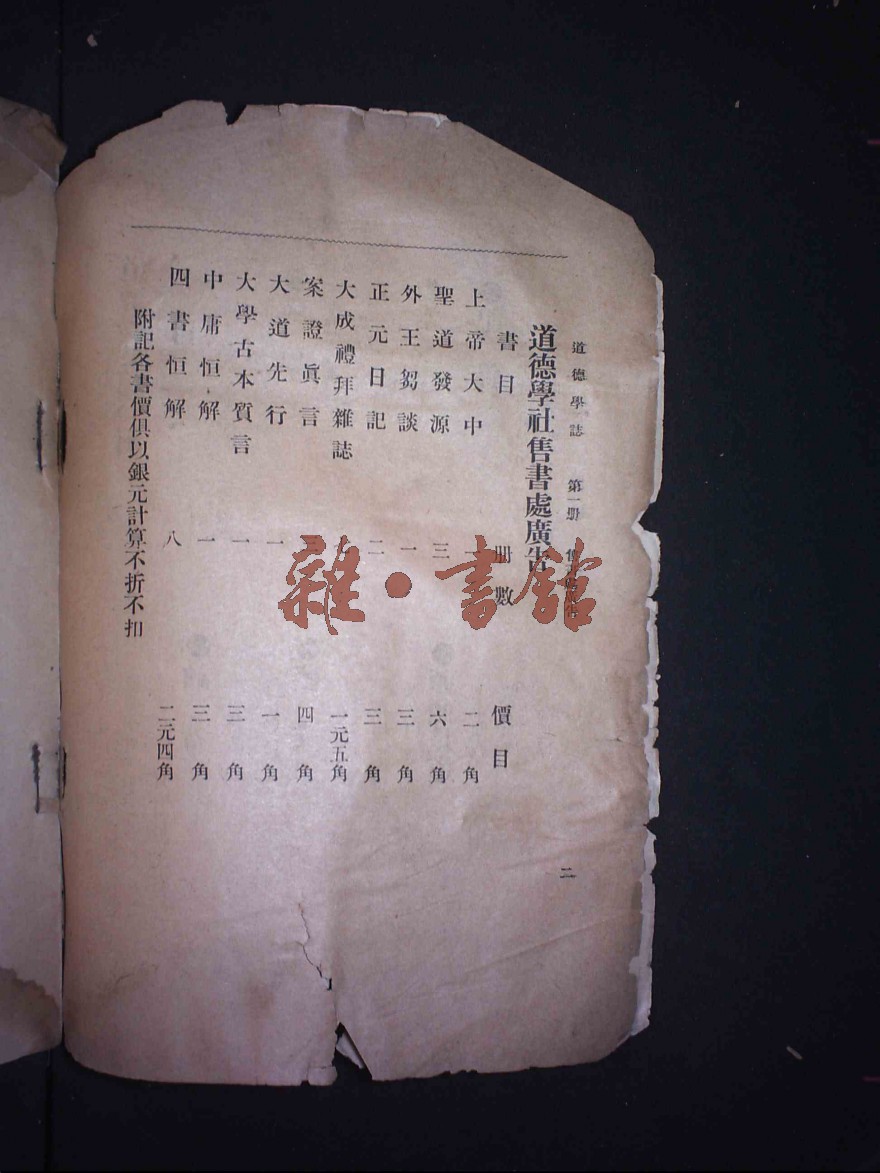 道德學誌 第一册
道德學社售書處廣告
書目 册數 價目
上帝大中 二角
聖道發源 三 六角
外王芻談 一 三角
正元日記 二 三角
大成禮拜雜誌 一元五角
案證眞言 四角
大道先行 一 一角
大學古本質言 一 三角
中庸恒解 一 三角
四書恒解 八 二元四角
附記各書價俱以銀元計算不折不扣
二
雜·書館